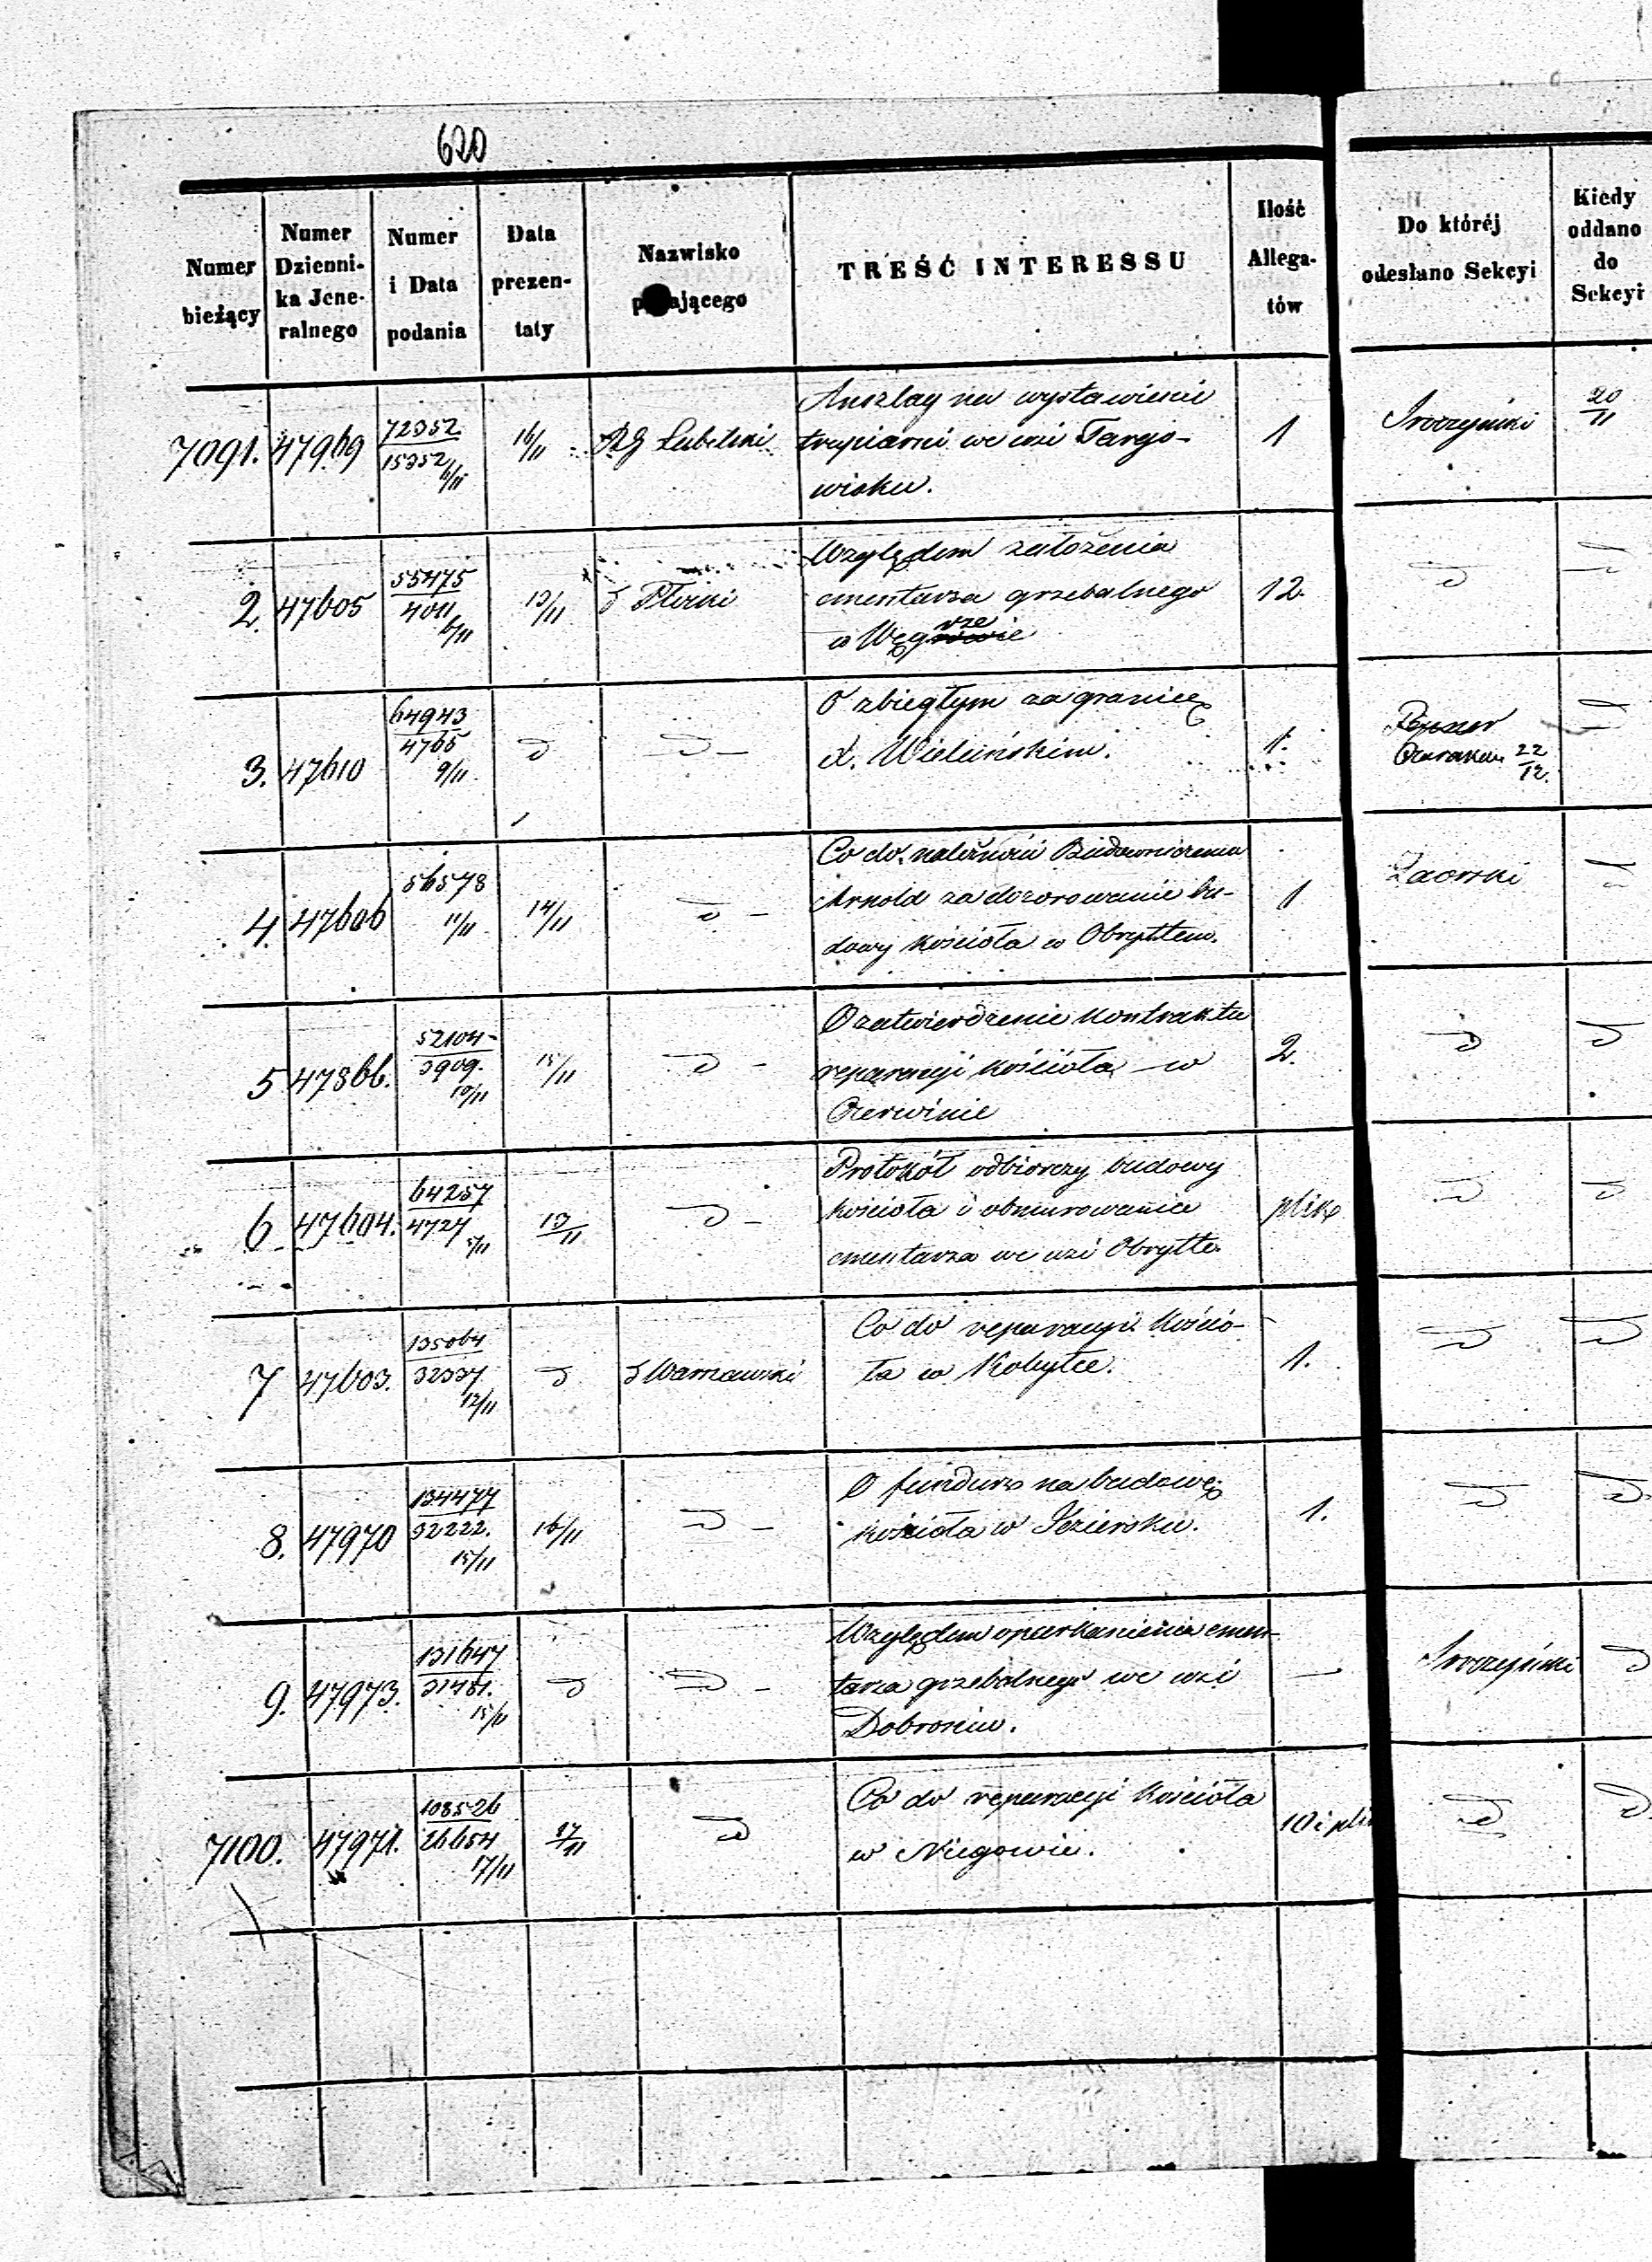 620
Numer bieżący | Numer Dzienni- ka Jene- ralnego | Numer i Data podania | Data prezen- taty | Nazwisko p ającego | TREŚĆ INTERESSU | Ilość Allega- tów | Do któréj odesłano Sekcyi | Kiedy oddano do Sekcyi
7091. 47969 72352 16/11 RG Lubelski Anszlag na wystawienie 1 20/11
15352 6/11 trupiarni we wsi Targo-
wisku.
2. 47605 55475 13/11 Płocki Względem założenia 12.
4011 6/11 cmentarza grzebalnego
w Węgrze
3. 47610 64943 O zbiegłym za granicę 1.
4765 9/11 X. Wieluńskim. 22/12.
4. 47606 56578 14/11 Co do należności Budowniczemu 1
11/11 Arnold za dozorowanie bu-
dowy kościoła w Obryttem.
5 47866. 52104 15/11 O zatwierdzenie kontraktu 2.
3909. 10/11 reparacyi kościoła w
Czerwinie
6 47604. 64257 13/11 Protokół odbiorczy budowy plik
4727 5/11 kościoła i obmurowanie
cmentarza we wsi Obrytte
7 47603. 135064 Warszawski Co do reparacyi kościo- 1.
32337 12/11 ła w Kobyłce.
8. 47970 134477 16/11 O fundusz na budowę 1.
32222. 15/11 kościoła w Jeziorsku.
9. 47973. 131647 Względem oparkanienia cmen-
31481. 15/11 tarza grzebalnego we wsi
Dobroniu.
7100. 47971. 108526 17/11 Co do reparacyi kościoła 10 i plik
26654 17/11 w Niegowie.